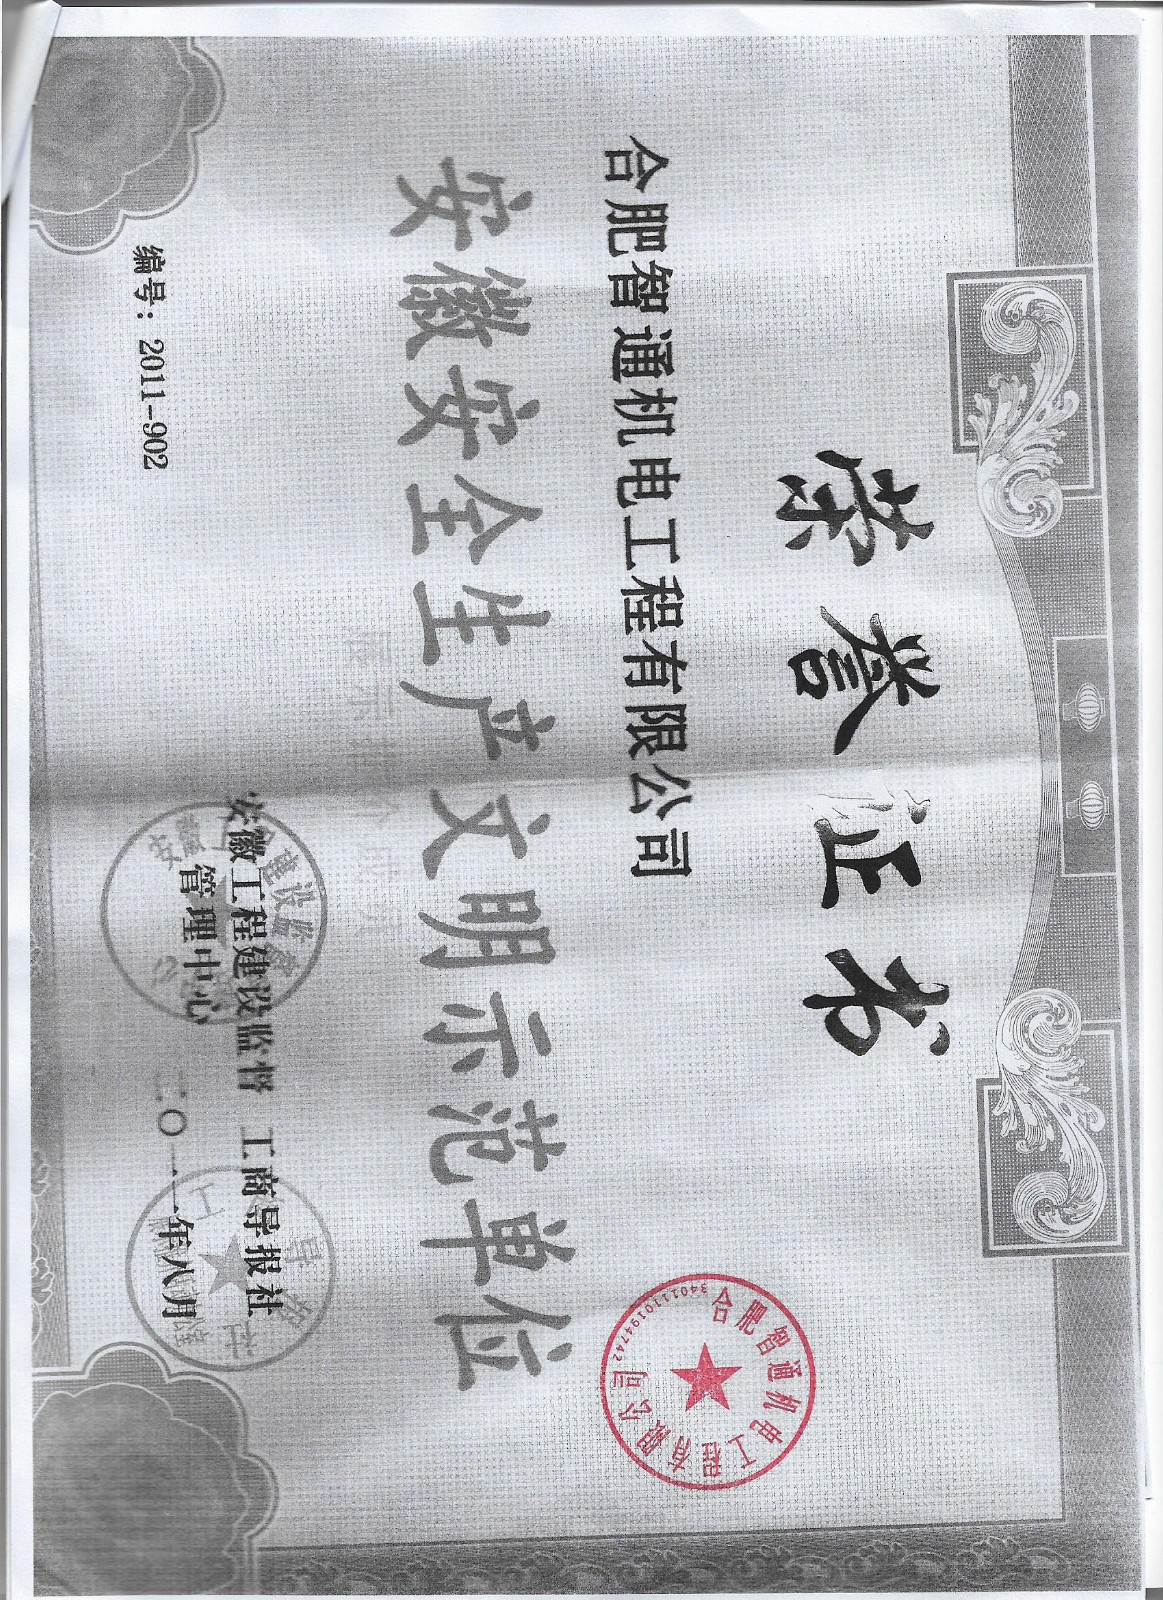 荣誉证书
合肥智通机电工程有限公司
安徽安全生产文明示范单位
安徽工程建设监督
管理中心
工商导报社
二〇一一年八月
编号：2011-902
合肥智通机电工程有限公司
3401110194742